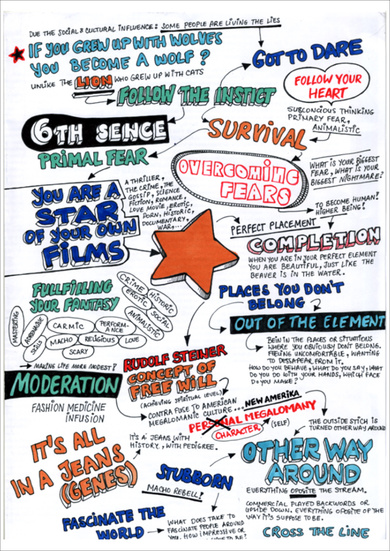 DUE THE SOCIAL & CULTURAL INFLUENCE: SOME PEOPLE ARE LIVING THE LIES
IF YOU GREW UP WITH WOLVES
YOU BECOME A WOLF?
UNLIKE THE LION WHO GREW UP WITH CATS
GOT TO DARE
FOLLOW THE INSTICT
FOLLOW YOUR
HEART
SUBCONCIOUS THINKING
PRIMARY FEAR,
ANIMALISTIC
6TH SENCE
PRIMAL FEAR
SURVIVAL
OVERCOMING
FEARS
WHAT IS YOUR BIGGEST
FEAR, WHAT IS YOUR
BIGGEST NIGHTMARE?
YOU ARE A
STAR
OF YOUR OWN
FILMS
A THRILLER,
THE CRIME, THE
GOSIP, SCIENCE
FICTION, ROMANCE,
LOVE MOVIE, EROTIC,
PORN, HISTORIC,
DOCUMENTARY
WAR...
TO BECOME HUMAN?
HIGHER BEING?
PERFECT PLACEMENT
COMPLETION
WHEN YOU ARE IN YOUR PERFECT ELEMENT
YOU ARE BEAUTIFUL, JUST LIKE THE
BEAVER IS IN THE WATER.
FULLFILLING
YOUR FANTASY
CRIME
HISTORIC
EROTIC
SOCIAL
ANIMALISTIC
CARMIC
PERFORMANCE
MACHO
RELIGIOUS
LOVE
SCARY
PLACES YOU DON'T
BELONG
OUT OF THE ELEMENT
BEIN IN THE PLACES OR SITUATIONS
WHERE YOU OBVIOUSLY DON'T BELONG.
FEELING UNCOMFORTABLE, WANTING
TO DISAPEAR, FROM IT.
HOW DO YOU BEHAVE, WHAT DO YOU SAY, WHAT
DO YOU DO WITH YOUR HANDS, WHICH FACE
DO YOU MAKE?
MAKING LIFE MORE MODEST?
MODERATION
FASHION MEDICINE
INFUSION
RUDOLF STEINER
CONCEPT OF
FREE WILL
(ACHIEVING SPIRITUAL LEVELS)
CONTRA FUCK TO AMERICAN
MEGALOMANIC CULTURE...
NEW AMERIKA
MEGALOMANY
CHARACTER
(SELF)
THE OUTSIDE STICH IS
TURNED OTHER WAY AROUND
IT'S A JEANS WITH
HISTORY, WITH PEDIGREE.
IT'S ALL
IN A JEANS
(GENES)
OTHER WAY
AROUND
EVERYTHING OPOSITE THE STREAM.
STUBBORN
MACHO REBELL?
COMMERCIAL PLAYED BACKWORDS OR
UPSIDE DOWN. EVERYTHING OPOSITE OF THE
WAY IT'S SUPPOSE TO BE.
FASCINATE THE
WORLD
WHAT DOES TAKE TO
FASCINATE PEOPLE AROUND
YOU. HOW IMPRESSIVE OR
CROSS THE LINE